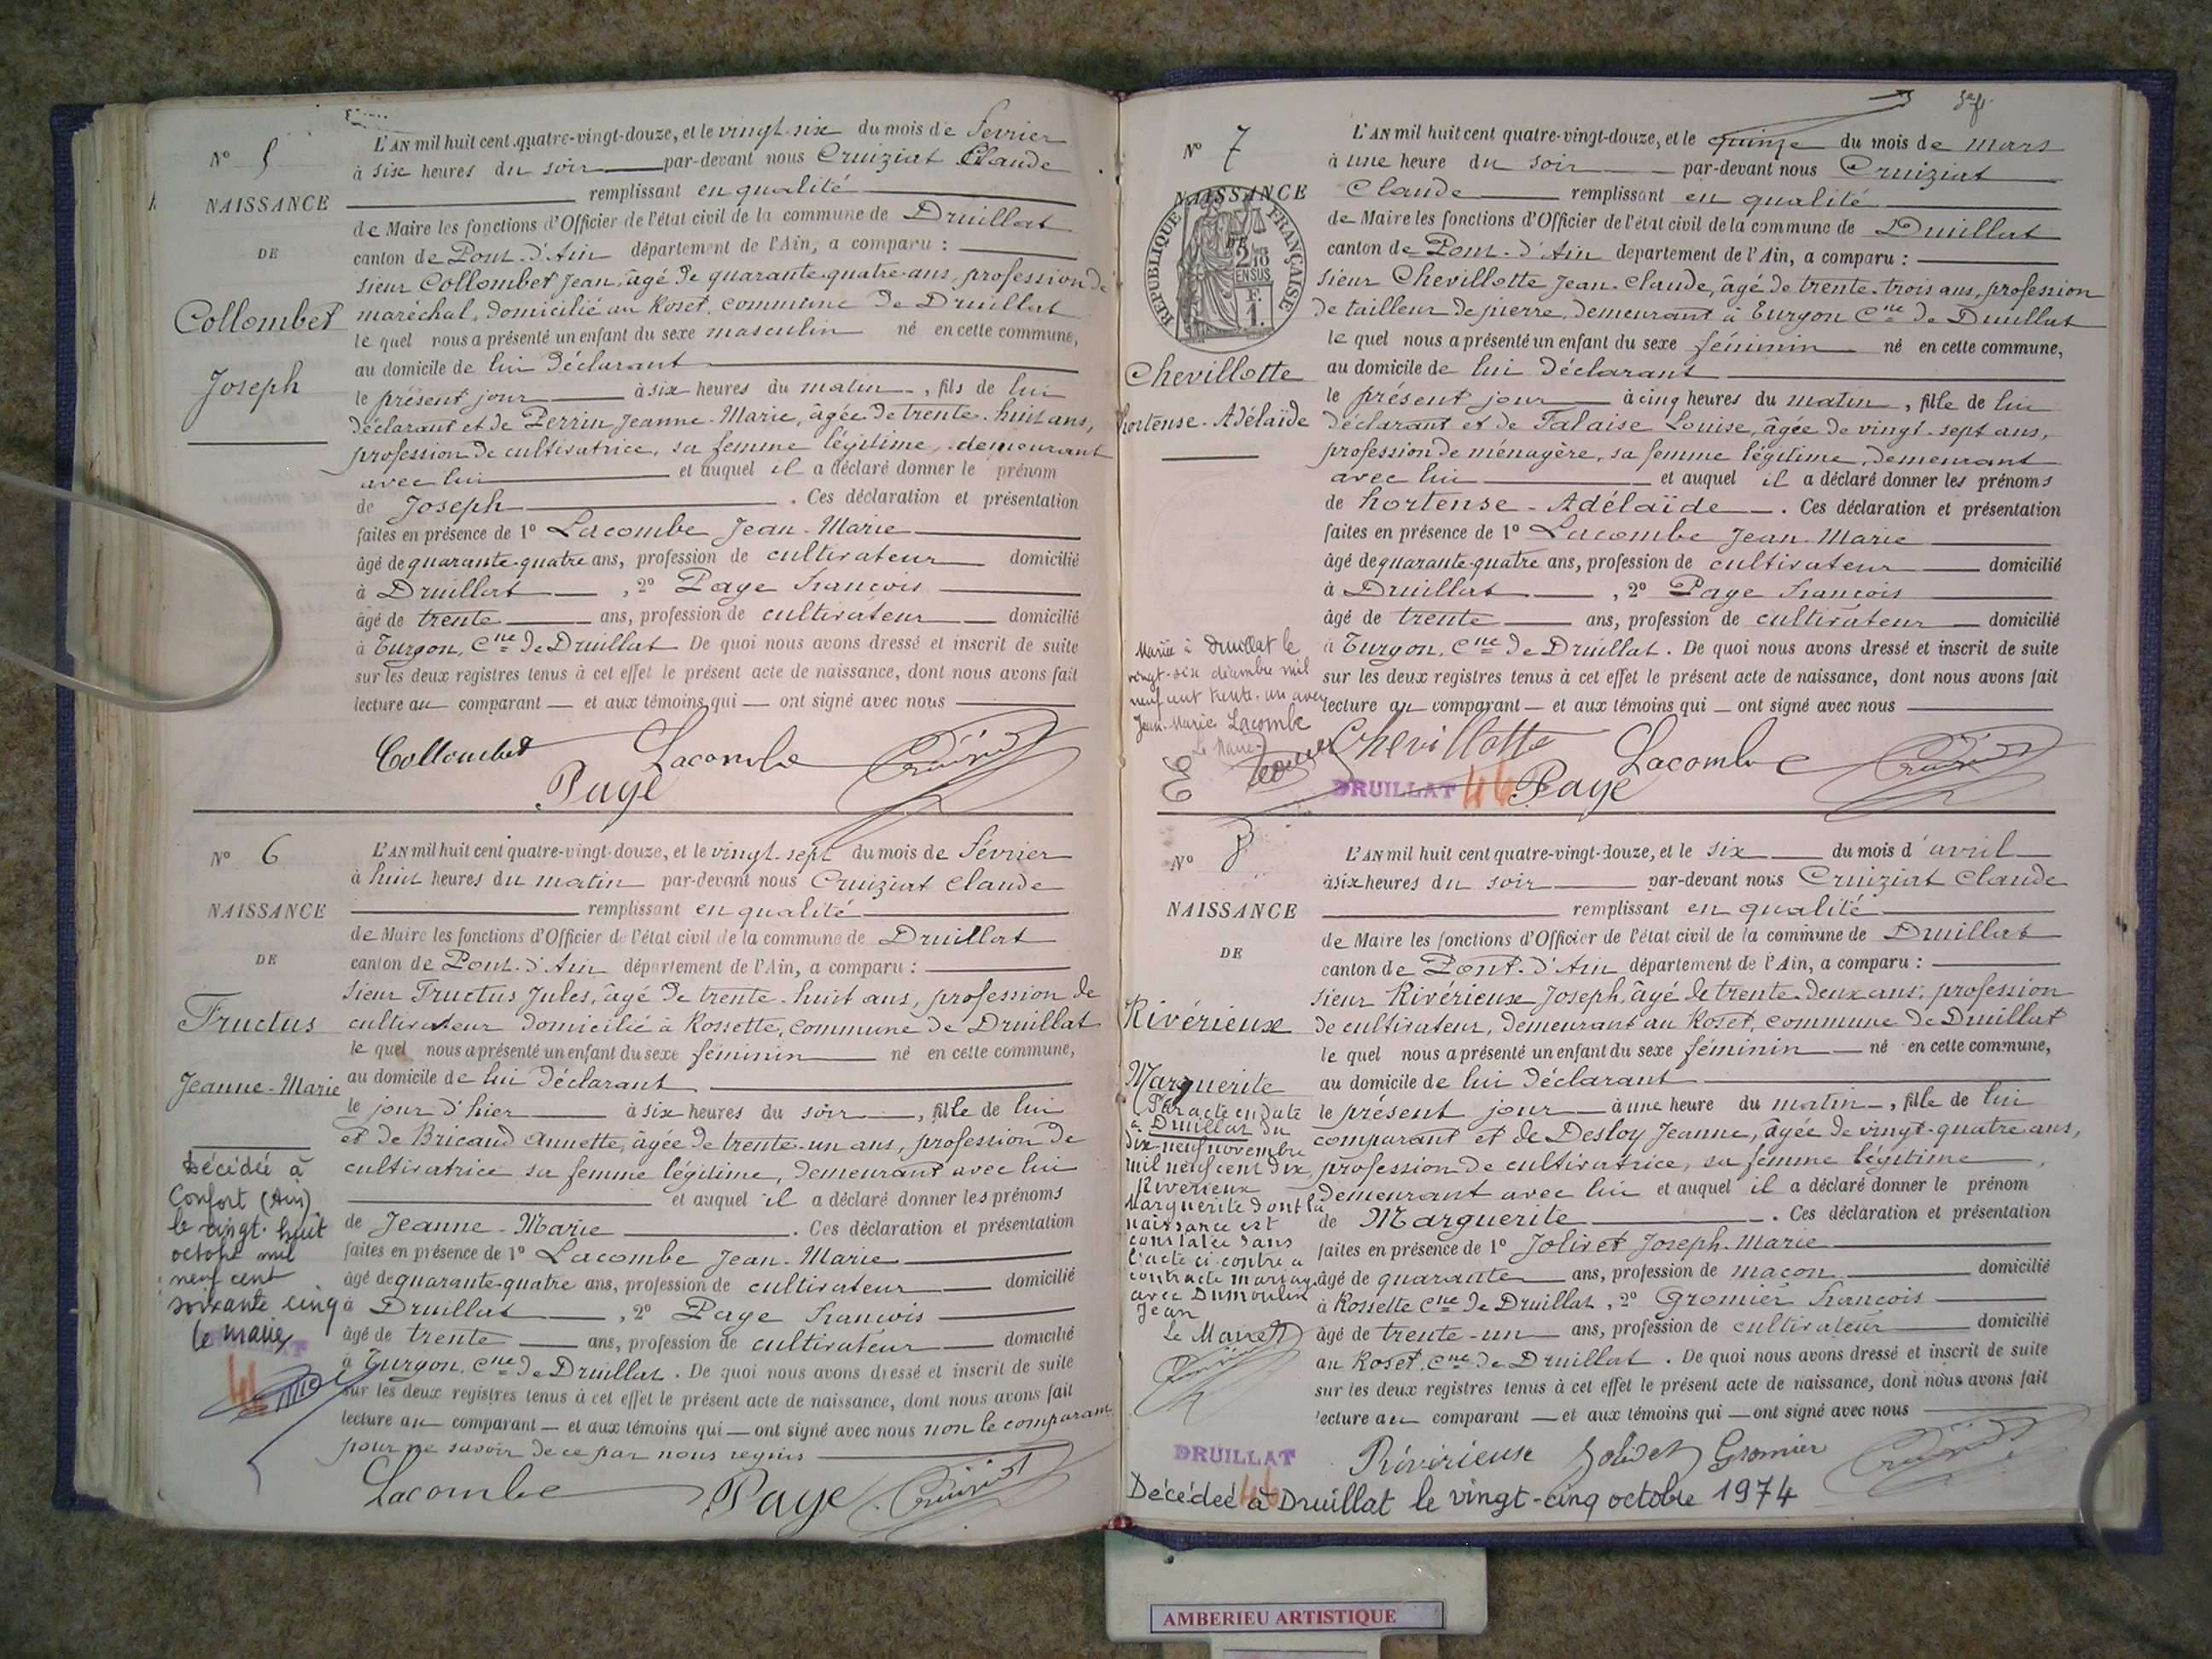 N° 5
NAISSANCE
DE
Collombet
Joseph
L'AN mil huit cent quatre-vingt-douze, et le vingt-six du mois de Février
à six heures du soir par-devant nous Cruiziat Claude
remplissant en qualité
de Maire les fonctions d'Officier de l'état civil de la commune de Druillat
canton de Pont-d'Ain département de l'Ain, a comparu :
sieur Collombet Jean, âgé de quarante-quatre ans, profession de
maréchal, domicilié au Roset, commune de Druillat
le quel nous a présenté un enfant du sexe masculin né en cette commune,
au domicile de lui déclarant
le présent jour à six heures du matin, fils de lui
déclarant et de Perrin Jeanne-Marie, âgée de trente-huit ans,
profession de cultivatrice, sa femme légitime, demeurant
avec lui et auquel il a déclaré donner le prénom
de Joseph. Ces déclaration et présentation
faites en présence de 1° Lacombe Jean-Marie
âgé de quarante-quatre ans, profession de cultivateur domicilié
à Druillat, 2° Page François
âgé de trente ans, profession de cultivateur domicilié
à Turgon, Cne de Druillat. De quoi nous avons dressé et inscrit de suite
sur les deux registres tenus à cet effet le présent acte de naissance, dont nous avons fait
lecture au comparant et aux témoins qui ont signé avec nous
Collombet Lacombe
Page
N° 6
NAISSANCE
DE
Fructus
Jeanne-Marie
Décédée à
Confort (Ain)
le vingt-huit
octobre mil
neuf cent
soixante cinq
le maire,
DRUILLAT
L'AN mil huit cent quatre-vingt-douze, et le vingt-sept du mois de Février
à huit heures du matin par-devant nous Cruiziat Claude
remplissant en qualité
de Maire les fonctions d'Officier de l'état civil de la commune de Druillat
canton de Pont-d'Ain département de l'Ain, a comparu :
sieur Fructus Jules, âgé de trente-huit ans, profession de
cultivateur domicilié à Rossette, commune de Druillat
le quel nous a présenté un enfant du sexe féminin né en cette commune,
au domicile de lui déclarant
le jour d'hier à six heures du soir, fille de lui
et de Bricaud Annette, âgée de trente-un ans, profession de
cultivatrice sa femme légitime, demeurant avec lui
et auquel il a déclaré donner les prénoms
de Jeanne-Marie. Ces déclaration et présentation
faites en présence de 1° Lacombe Jean-Marie
âgé de quarante-quatre ans, profession de cultivateur domicilié
à Druillat, 2° Page François
âgé de trente ans, profession de cultivateur domicilié
à Turgon, Cne de Druillat. De quoi nous avons dressé et inscrit de suite
sur les deux registres tenus à cet effet le présent acte de naissance, dont nous avons fait
lecture au comparant et aux témoins qui ont signé avec nous non le comparant
pour ne savoir de ce par nous requis
Lacombe Page
N° 7
NAISSANCE
RÉPUBLIQUE FRANÇAISE
2/10
EN SUS
F.
1.
Chevillotte
hortense-Adélaïde
Mariée à Druillat le
vingt-six décembre mil
neuf cent trente-un avec
Jean-Marie Lacombe
Le Maire
L'AN mil huit cent quatre-vingt-douze, et le quinze du mois de mars
à une heure du soir par-devant nous Cruiziat
Claude remplissant en qualité
de Maire les fonctions d'Officier de l'état civil de la commune de Druillat
canton de Pont-d'Ain département de l'Ain, a comparu :
sieur Chevillotte Jean-Claude, âgé de trente-trois ans, profession
de tailleur de pierre, demeurant à Turgon Cne de Druillat
le quel nous a présenté un enfant du sexe féminin né en cette commune,
au domicile de lui déclarant
le présent jour à cinq heures du matin, fille de lui
déclarant et de Falaise Louise, âgée de vingt-sept ans,
profession de ménagère, sa femme légitime, demeurant
avec lui et auquel il a déclaré donner les prénoms
de hortense-Adélaïde. Ces déclaration et présentation
faites en présence de 1° Lacombe Jean-Marie
âgé de quarante-quatre ans, profession de cultivateur domicilié
à Druillat, 2° Page François
âgé de trente ans, profession de cultivateur domicilié
à Turgon, Cne de Druillat. De quoi nous avons dressé et inscrit de suite
sur les deux registres tenus à cet effet le présent acte de naissance, dont nous avons fait
lecture au comparant et aux témoins qui ont signé avec nous
Chevillotte Lacombe
DRUILLAT 46 Page
N° 8
NAISSANCE
DE
Rivérieux
Marguerite
Par acte en date
à Druillat du
dix-neuf novembre
mil neuf cent dix,
Riverieux
Marguerite dont la
naissance est
constatée dans
l'acte ci-contre a
contracté mariage
avec Dumoulin
Jean
Le Maire
L'AN mil huit cent quatre-vingt-douze, et le six du mois d'avril
à six heures du soir par-devant nous Cruiziat Claude
remplissant en qualité
de Maire les fonctions d'Officier de l'état civil de la commune de Druillat
canton de Pont-d'Ain département de l'Ain, a comparu :
sieur Rivérieux Joseph, âgé de trente-deux ans, profession
de cultivateur, demeurant au Roset, commune de Druillat
le quel nous a présenté un enfant du sexe féminin né en cette commune,
au domicile de lui déclarant
le présent jour à une heure du matin, fille de lui
comparant et de Desloy Jeanne, âgée de vingt-quatre ans,
profession de cultivatrice, sa femme légitime,
demeurant avec lui et auquel il a déclaré donner le prénom
de Marguerite. Ces déclaration et présentation
faites en présence de 1° Jolivet Joseph-Marie
âgé de quarante ans, profession de maçon domicilié
à Rossette Cne de Druillat, 2° Gromier François
âgé de trente-un ans, profession de cultivateur domicilié
au Roset, Cne de Druillat. De quoi nous avons dressé et inscrit de suite
sur les deux registres tenus à cet effet le présent acte de naissance, dont nous avons fait
lecture au comparant et aux témoins qui ont signé avec nous
DRUILLAT Rivérieux Jolivet Gromier
Décédée à Druillat le vingt-cinq octobre 1974
AMBERIEU ARTISTIQUE